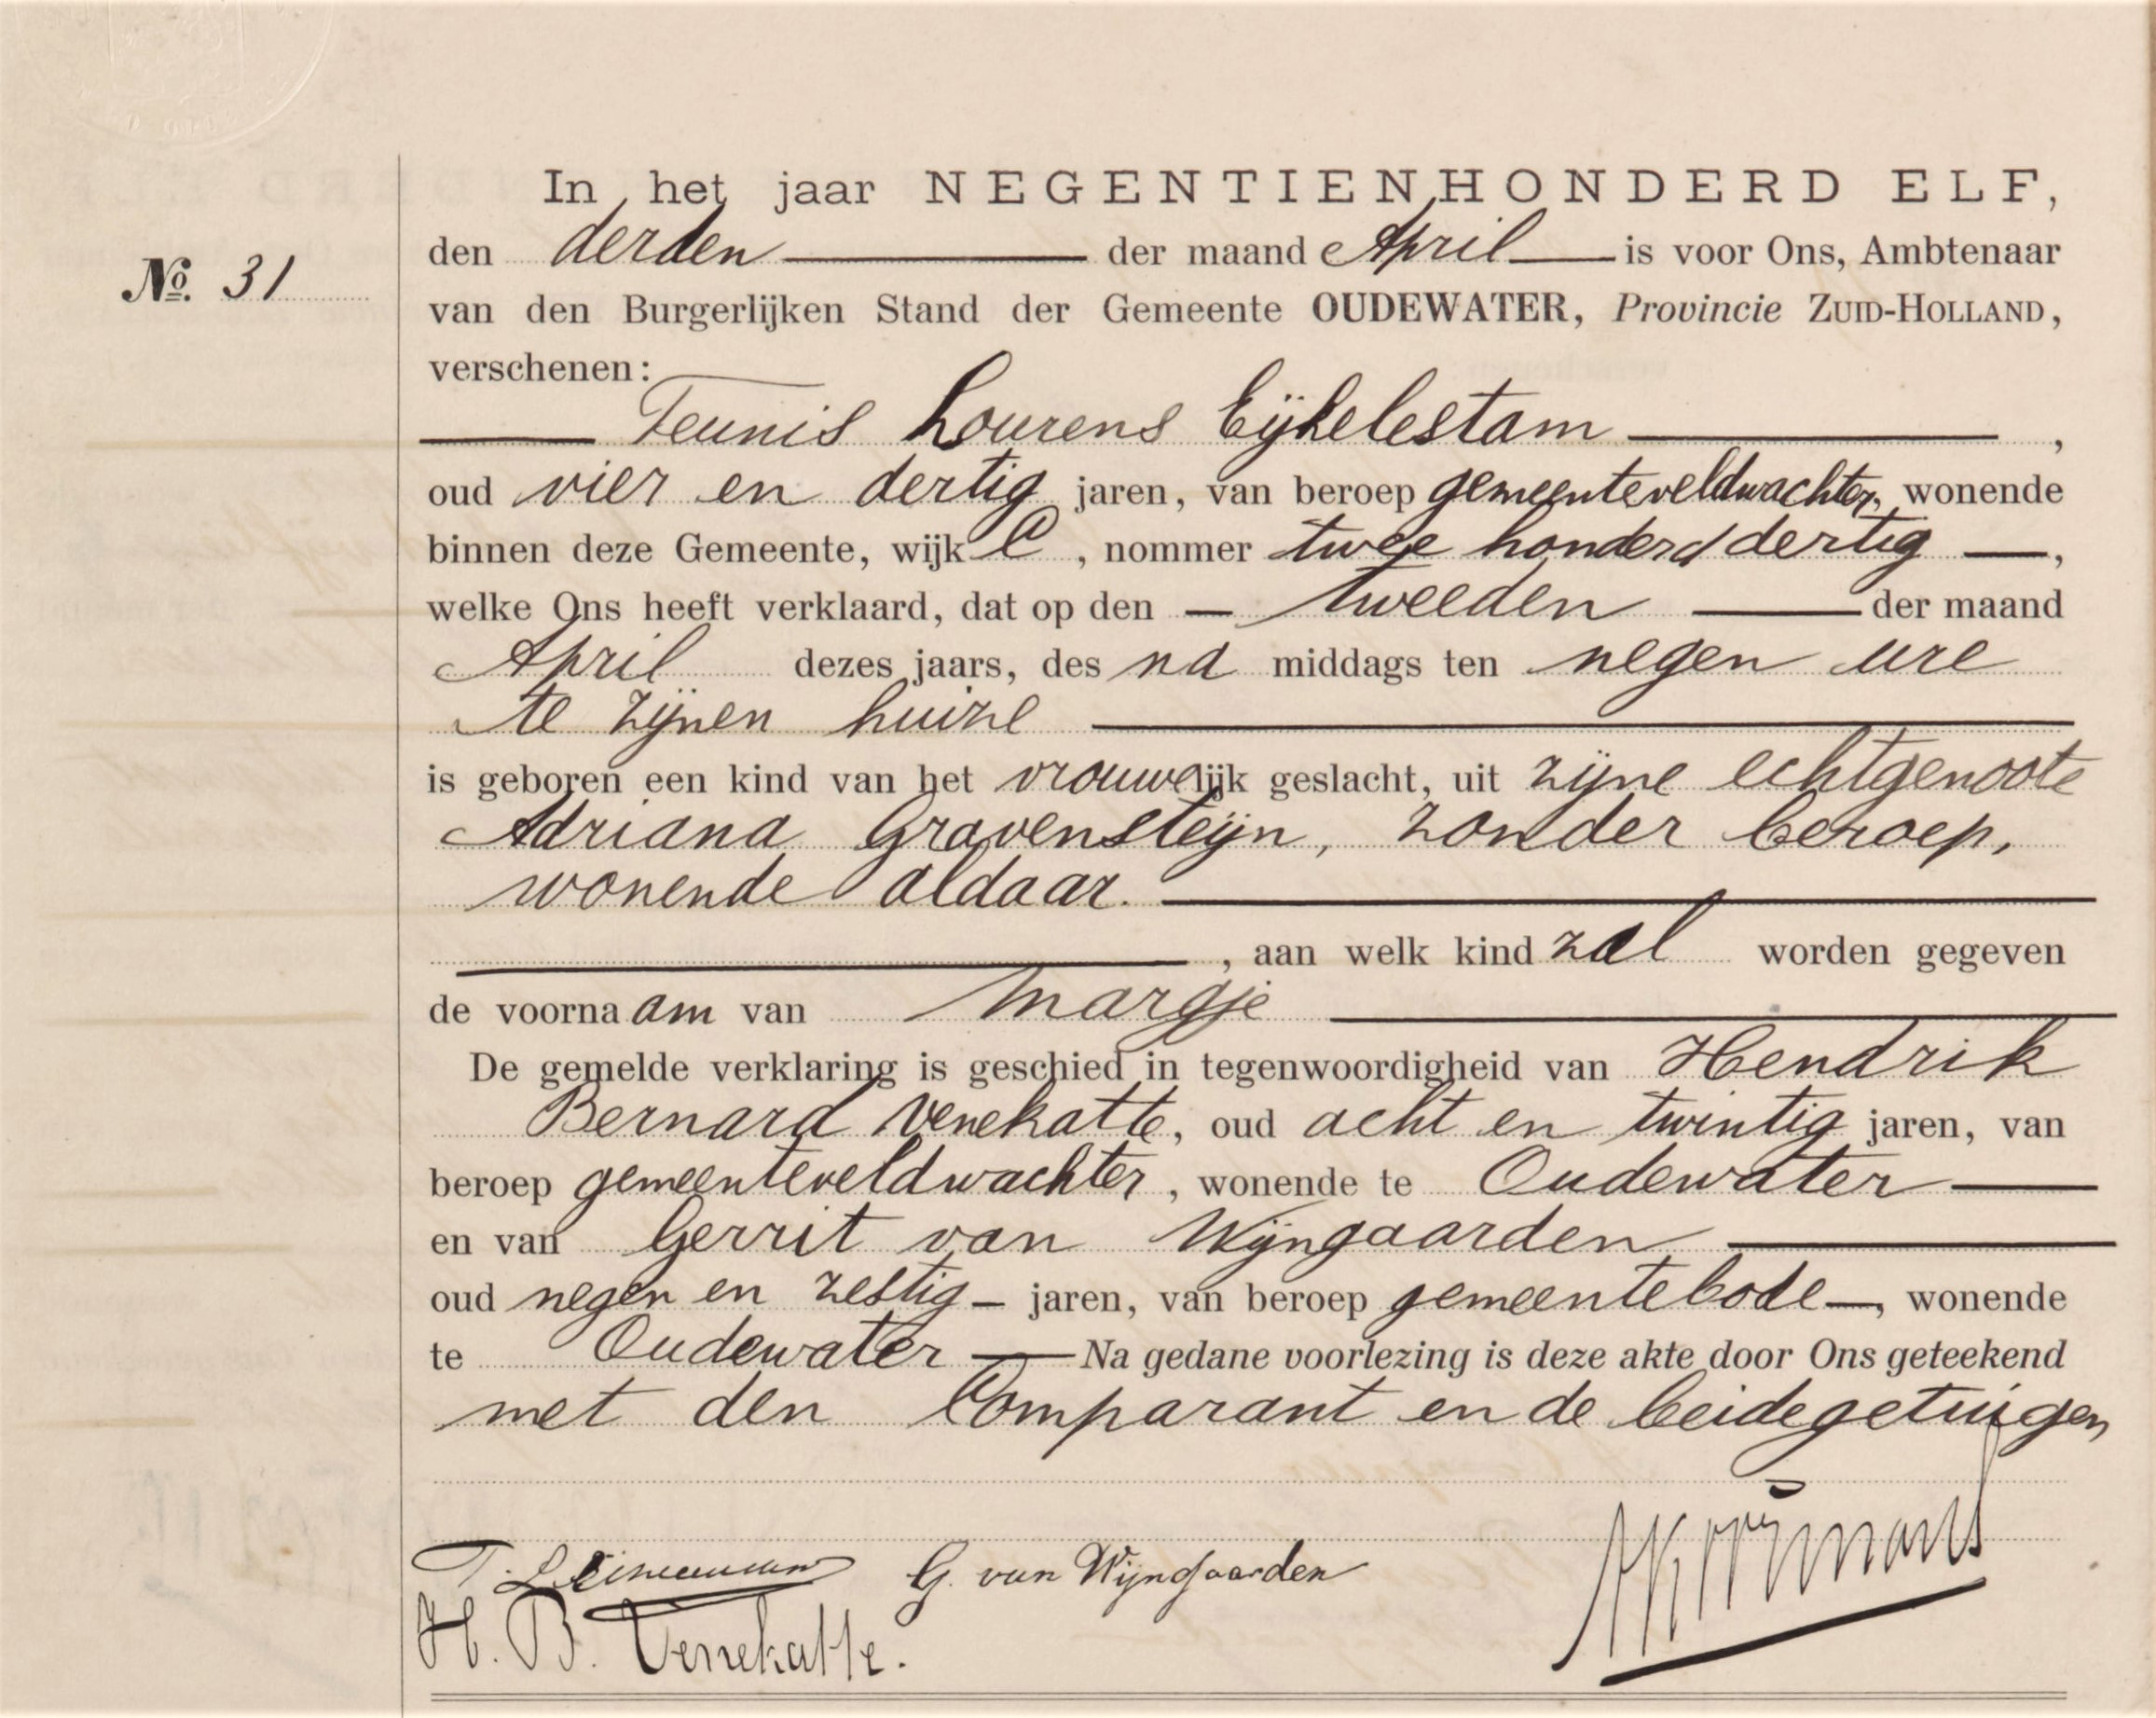 In het jaar NEGENTIENHONDERD ELF,
den derden der maand April is voor Ons, Ambtenaar
No. 31
van den Burgerlijken Stand der Gemeente OUDEWATER, Provincie ZUID-HOLLAND,
verschenen:
Teunis Lourens Eijkelestam,
oud vier en dertig jaren, van beroep gemeenteveldwachter, wonende
binnen deze Gemeente, wijk C, nommer twee honderd dertig,
welke Ons heeft verklaard, dat op den tweeden der maand
April dezes jaars, des na middags ten negen ure
te zijnen huize
is geboren een kind van het vrouwelijk geslacht, uit zijne echtgenoote
Adriana Gravensteijn, zonder beroep,
wonende aldaar.
, aan welk kind zal worden gegeven
de voornaam van Margje
De gemelde verklaring is geschied in tegenwoordigheid van Hendrik
Bernard Venekatte, oud acht en twintig jaren, van
beroep gemeenteveldwachter, wonende te Oudewater
en van Gerrit van Wijngaarden
oud negen en zestig jaren, van beroep gemeentebode, wonende
te Oudewater Na gedane voorlezing is deze akte door Ons geteekend
met den Comparant en de beide getuigen
G. van Wijngaarden
H. B. Venekatte.